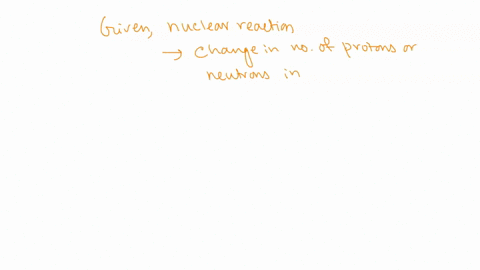 Given, nuclear reaction
→ change in no. of protons or
neutrons in